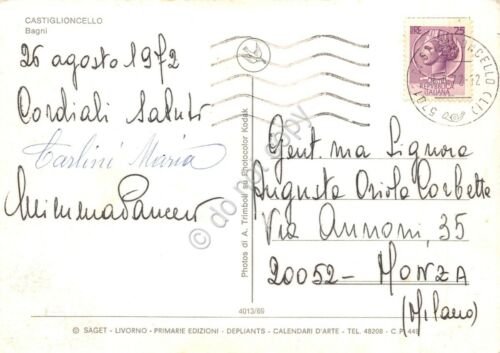 CASTIGLIONCELLO
Bagni
26 agosto 1972
Cordiali Saluti
Tarlini Maria
Mimma
LIRE 25
REPUBBLICA
ITALIANA
Gent.ma Signora
Augusta Oriola Corbetta
Via Annoni, 35
20052 - MONZA
(Milano)
Photos di A. Trimboli su Photocolor Kodak
4013/69
© SAGET - LIVORNO - PRIMARIE EDIZIONI - DEPLIANTS - CALENDARI D'ARTE - TEL. 48208 - C.P. 449
do not copy